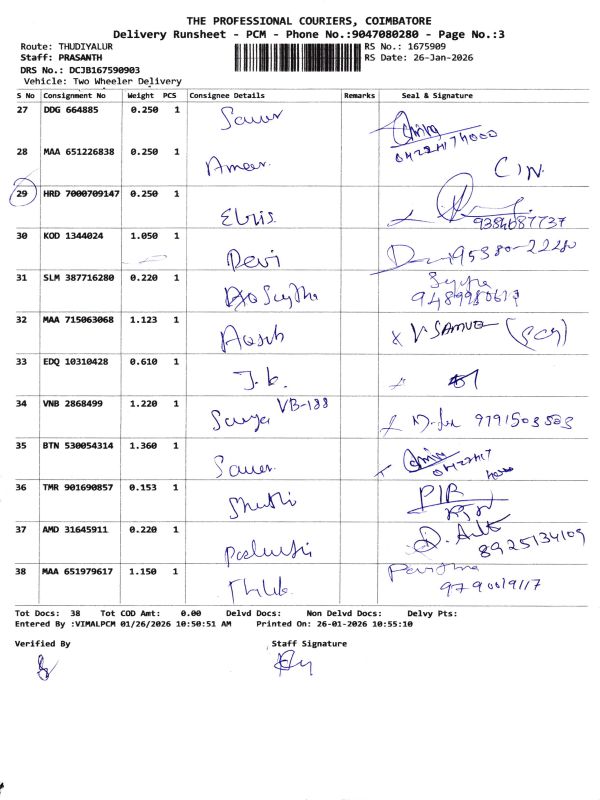 THE PROFESSIONAL COURIERS, COIMBATORE
Delivery Runsheet - PCM - Phone No.:9047080280 - Page No.:3
Route: THUDIYALUR RS No.: 1675909
Staff: PRASANTH RS Date: 26-Jan-2026
DRS No.: DCJB167590903
Vehicle: Two Wheeler Delivery
S No Consignment No Weight PCS Consignee Details Remarks Seal & Signature
27 DDG 664885 0.250 1
28 MAA 651226838 0.250 1 Ameer CIN
29 HRD 7000709147 0.250 1 9384687737
30 KOD 1344024 1.050 1 Devi 95380-22280
31 SLM 387716280 0.220 1
32 MAA 715063068 1.123 1 V SAMUEL
33 EDQ 10310428 0.610 1 J. b.
34 VNB 2868499 1.220 1 Surya VB-188 9791503503
35 BTN 530054314 1.360 1
36 TMR 901690857 0.153 1 Shruthi
37 AMD 31645911 0.220 1 8925134109
38 MAA 651979617 1.150 1 Pavithra
Tot Docs: 38 Tot COD Amt: 0.00 Delvd Docs: Non Delvd Docs: Delvy Pts:
Entered By :VIMALPCM 01/26/2026 10:50:51 AM Printed On: 26-01-2026 10:55:10
Verified By Staff Signature